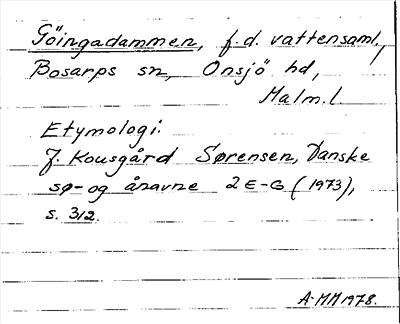 Göingadammen, f.d. vattensaml.,
Bosarps sn, Onsjö hd,
Malm. l.
Etymologi:
J. Kousgård Sørensen, Danske
sø- og ånavne 2 E-G (1973),
s. 312.
A. MM 1978.